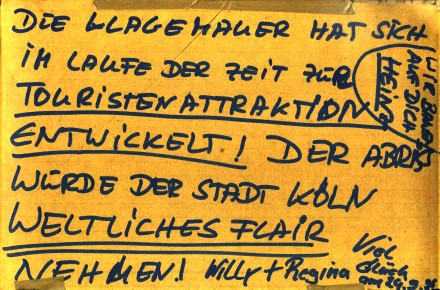 DIE KLAGEMAUER HAT SICH
IM LAUFE DER ZEIT ZUR
TOURISTENATTRAKTION
ENTWICKELT! DER ABRIS
WÜRDE DER STADT KÖLN
WELTLICHES FLAIR
NEHMEN! Willy + Regina
AUF DICH
HEINZ
Viel
Glück
am 29.9.